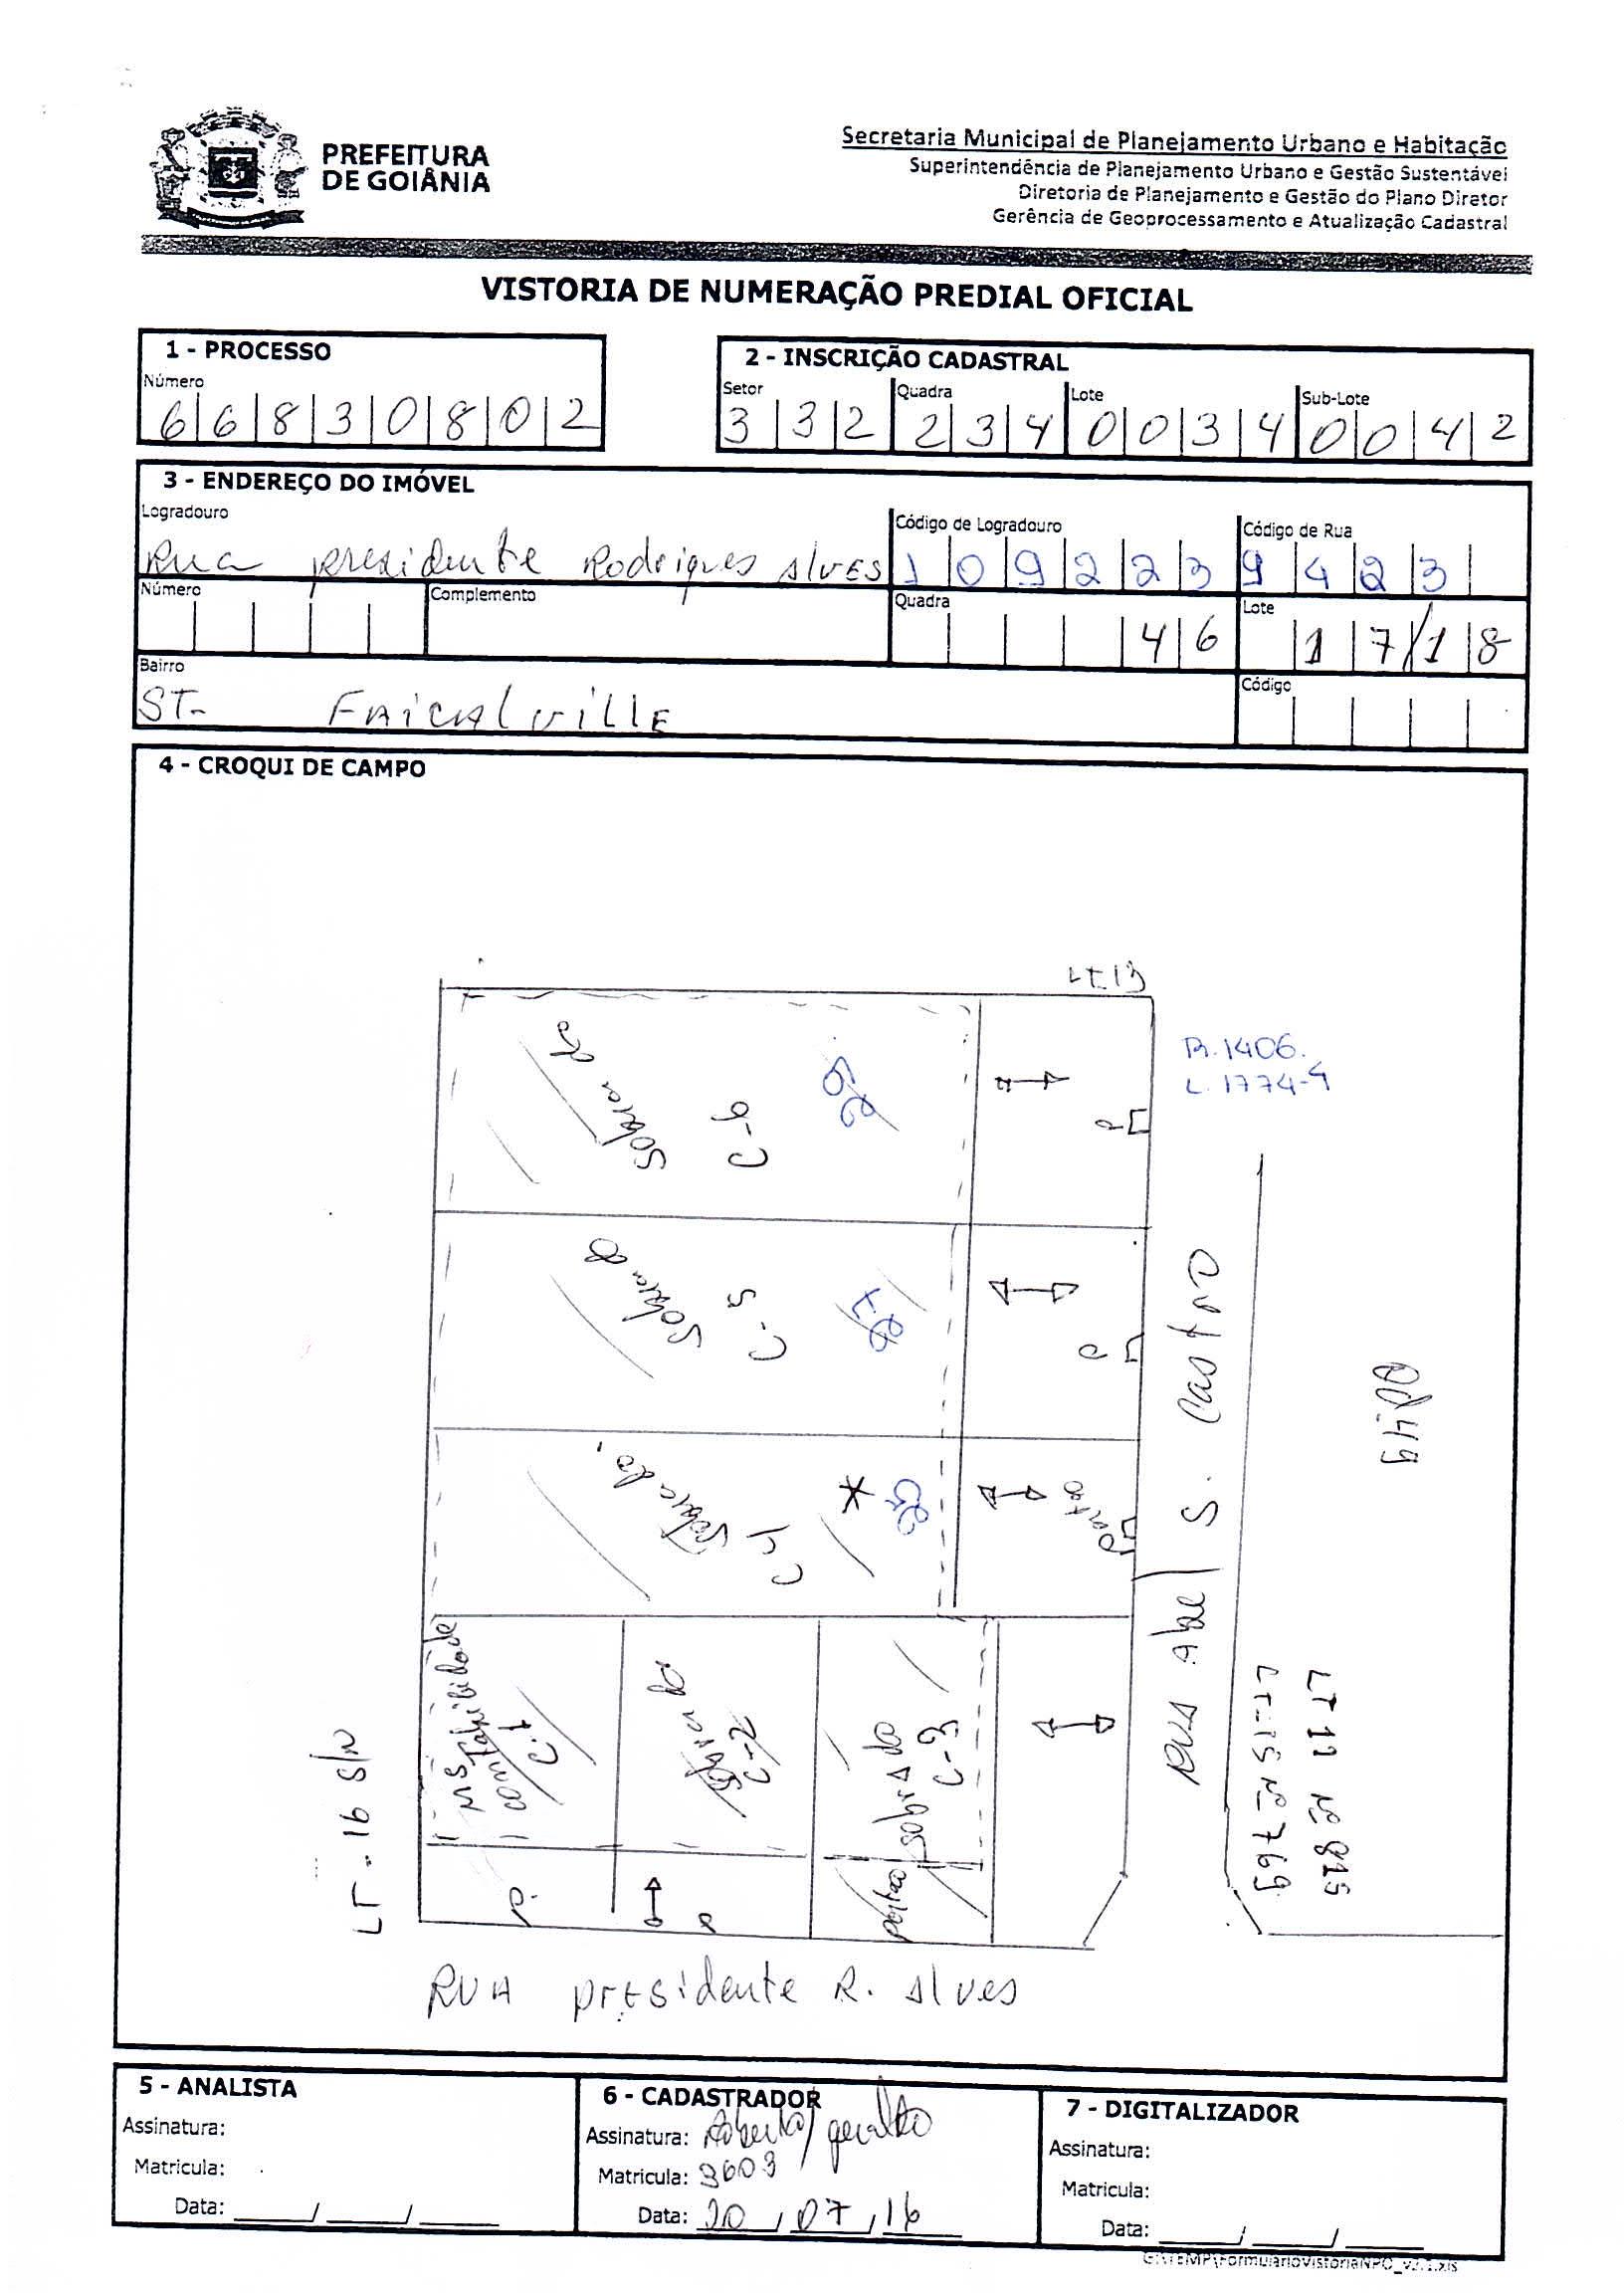 PREFEITURA
DE GOIÂNIA
Secretaria Municipal de Planejamento Urbano e Habitação
Superintendência de Planejamento Urbano e Gestão Sustentável
Diretoria de Planejamento e Gestão do Plano Diretor
Gerência de Geoprocessamento e Atualização Cadastral
VISTORIA DE NUMERAÇÃO PREDIAL OFICIAL
1 - PROCESSO
Número
66830802
2 - INSCRIÇÃO CADASTRAL
Setor Quadra Lote Sub-Lote
332 234 0034 0042
3 - ENDEREÇO DO IMÓVEL
Logradouro Código de Logradouro Código de Rua
Rua presidente Rodrigues Alves 109223 9423
Número Complemento Quadra Lote
46 17/18
Bairro Código
ST- FAICALVILLE
4 - CROQUI DE CAMPO
LT.13
R.1406.
L.1774-9
Sobrado
C-6
P
Sobrado
C-5
27
P
Sobrado
C-4
*
Portao
RUA Abel S. Castro
QD.49
LT 11 Nº 815
LT-15 Nº 769
LT-16 S/N
MS contabilidade
C.1
Sobrado
C-2
Sobrado
C-3
P.
P
portao
RUA presidente R. Alves
5 - ANALISTA
Assinatura:
Matricula:
Data: ____/____/____
6 - CADASTRADOR
Assinatura: Roberto/geraldo
Matricula: 3603
Data: 20/07/16
7 - DIGITALIZADOR
Assinatura:
Matricula:
Data: ____/____/____
G:\TEMP\FormularioVistoriaNPO_v2.1.xls